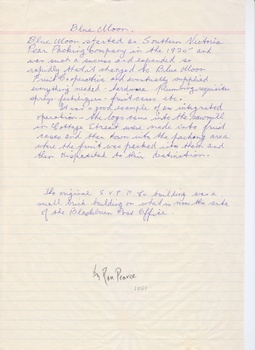 Blue Moon.
Blue Moon started as Southern Victoria
Pear Packing Company in the 1920s and
was such a success and expanded so
rapidly that it changed to Blue Moon
Fruit Cooperative and eventually supplied
everything needed - hardware Plumbing requisites
sprays - fertilizers - fruit cases etc.
It was a good example of an integrated
operation - the logs came into the sawmill
in Cottage Street were made into fruit
cases and then down into the packing area
where the fruit was packed into them and
then despatched to their destination.
The original S.V.P.P. Co building was a
small brick building on what is now the site
of the Blackburn Post Office.
by Ron Pearce